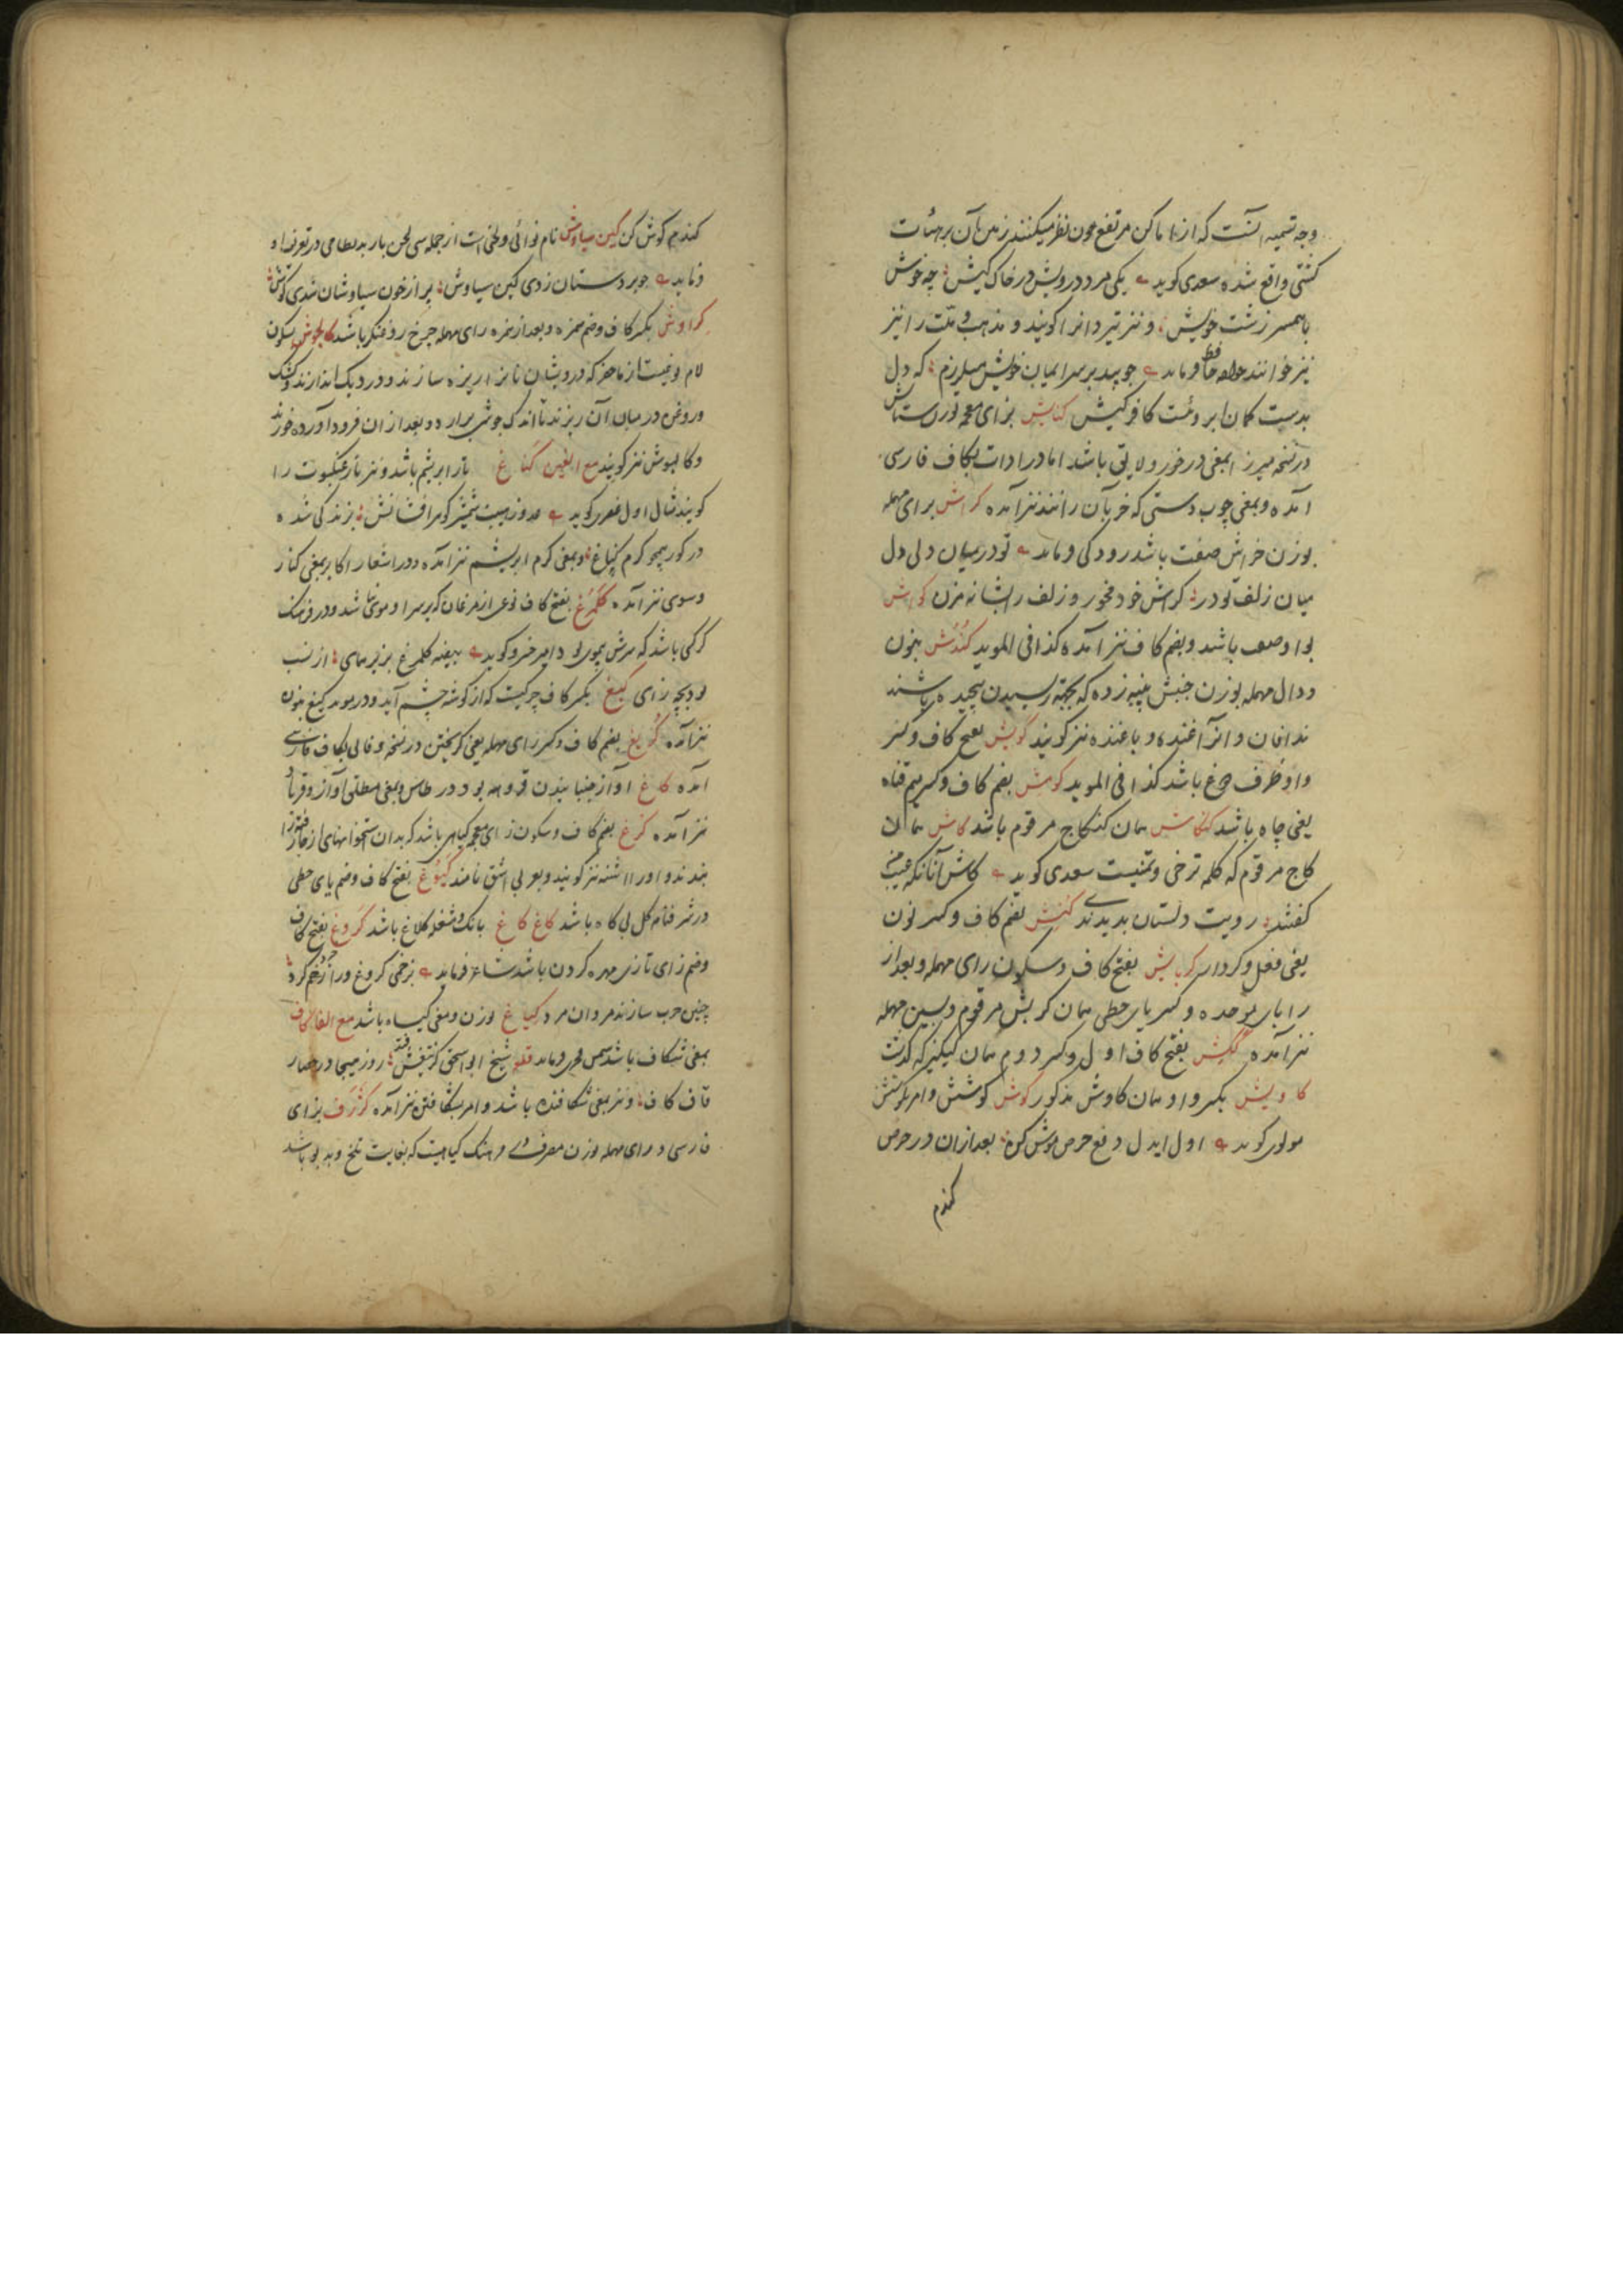 وجه تسمیه آنست که از اماکن مرتفع چون نظر میکنند زمین آن بر هیئات
کشتی واقع شده سعدی کوید یکی مرد درویش در خاک کیش چه خوش
با همسر زشت خویش و نیز تیردانرا کویند و مذهب و ملت را نیز
نیز خوانند خواجه حافظ فرماید چو بید بر سر ایمان خویش میلرزم که دل
بدست کمان ابروئست کافر کیش بزای معجمه بوزن ستایش
در نسخه میرزا بمعنی درخور و لایق باشد اما در ادات بکاف فارسی
آمده و بمعنی چوب دستی که خر بآن رانند نیز آمده کراش برای مهمله
بوزن خراش صفت باشد رودکی فرماید تو در میان دلی دل
میان زلف تو در کراش خود مخور و زلف را شانه مزن کواش
بواو وصف باشد و بضم کاف نیز آمده کذا فی الموید کندش بنون
و دال مهمله بوزن جنبش پنبه زده که بجهته ریسیدن پیچیده باشند
ندافان و انرا غنده و باغنده نیز کویند کویش بفتح کاف و کسر
واو ظرف دوغ باشد کذا فی الموید کومش بضم کاف و کسر میم قناه
یعنی چاه باشد کنکاش همان کنکاج مرقوم باشد کاش همان
کاج مرقوم که کلمه ترجی و تمنیست سعدی کوید کاش آنانکه عیب من
کفتند رویت دلستان بدیدندی کنش بضم کاف و کسر نون
یعنی فعل و کردار کربایش بفتح کاف و سکون رای مهمله و بعد از
را بای موحده و کسر یای حطی همان کربش مرقوم و بسین مهمله
نیز آمده ککیش بفتح کاف اول و کسر دوم همان کیکیز که کذشت
کاویش بکسر واو همان کاوش مذکور کوش کوشش و امر بکوشش
مولوی کوید اول ایدل دفع حرص موش کن بعد از ان در حرص
کندم
کندم کوش کن کین سیاوش نام نوائی و لحنی است از جمله سی لحن باربد نظامی در تعریف او
فرماید چو بر دستان زدی کین سیاوش پر از خون سیاوشان شدی کوش
بکسر کاف و ضم همزه و بعد از همزه رای مهمله چرخ روغنکر باشد کالجوش بسکون
لام نوعیست از ماحضر که درویشان نانرا ریزه سازند و در دیک اندازند و کشک
و روغن در میان آن ریزند تا اندک جوشی برآرد و بعد از ان فرود آورده خورند
و کالیوش نیز کویند مع الغین کناغ تار ابریشم باشد و نیز تار عنکبوت را
کویند مثال اول عنصری کوید عدو ز هیبت شمشیر کوهر افشانش بزندکی شده
در کور همچو کرم کناغ و بمعنی کرم ابریشم نیز آمده و در اشعار اکابر بمعنی کنار
و سوی نیز آمده کلمرغ بفتح کاف نوعی از مرغان که بر سر او موی نباشد و در فرهنک
کرکی باشد که سرش بیموی بود امیر خسرو کوید بیضه کلمرغ بزیر همای از نسب
بود بچه زای کیغ بکسر کاف چرکیست که از کوشه چشم آید و در موید کینغ بنون
نیز آمده کریغ بضم کاف و کسر رای مهمله یعنی کریختن در نسخه وفائی بکاف فارسی
آمده کاغ آواز جنبانیدن
نیز آمده کزغ بضم کاف و سکون زای معجمه کیاهی باشد که بدان استخوانهای از جا رفته را
بندند و اورا اشنه نیز کویند و بعربی اشق نامند کیوغ بفتح کاف و ضم یای حطی
در شرفنامه کل بی کاه باشد کاغ کاغ بانک و مشغله کلاغ باشد کزوغ بفتح کاف
و ضم زای تازی مهره کردن باشد شاعر فرماید بزخمی کزوغ ورا خرد کرد
چنین حرب سازند مردان مرد کیاغ بوزن و معنی کیاه باشد مع الفا کاف
بمعنی شکاف باشد شمس فخری فرماید قلعه شیخ ابو اسحق کز تیغش فتد روز هیجا در حصار
قاف کاف و نیز بمعنی شکافنده باشد و امر بشکافتن نیز آمده کژرف بزای
فارسی و رای مهمله بوزن مصرف در فرهنک کیاهیست که بغایت تلخ و بدبو باشد